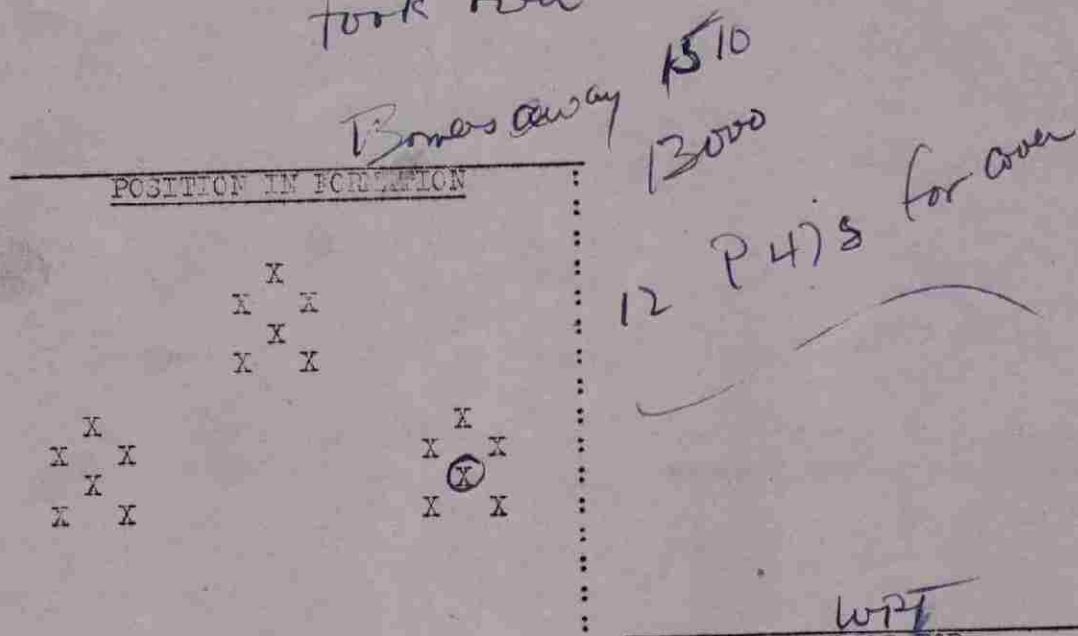 took
Bombs away 1510
13000
12 P 47s for cover
POSITION IN FORMATION
X
X X
X
X X
X
X X
X
X X
X
X X
X
X X
WPT